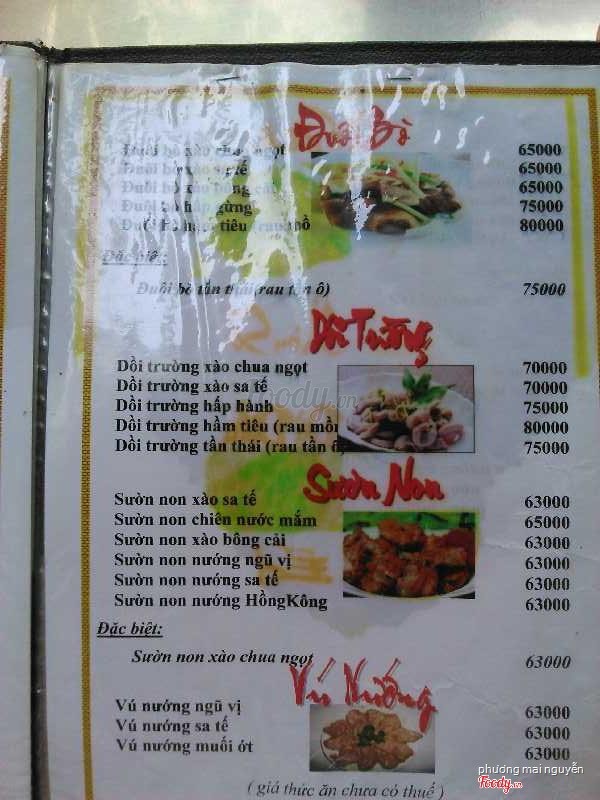 Đuôi Bò
Đuôi bò xào chua ngọt 65000
Đuôi bò xào sa tế 65000
Đuôi bò xào bông cải 65000
Đuôi bò hấp gừng 75000
Đuôi bò hầm tiêu (rau mồ 80000
Đặc biệt:
Đuôi bò tần thái(rau tần ô) 75000
Dồi Trường
Dồi trường xào chua ngọt 70000
Dồi trường xào sa tế 70000
Dồi trường hấp hành 75000
Dồi trường hầm tiêu (rau mồn 80000
Dồi trường tần thái (rau tần ô) 75000
Sườn Non
Sườn non xào sa tế 63000
Sườn non chiên nước mắm 65000
Sườn non xào bông cải 63000
Sườn non nướng ngũ vị 63000
Sườn non nướng sa tế 63000
Sườn non nướng HồngKông 63000
Đặc biệt:
Sườn non xào chua ngọt 63000
Vú Nướng
Vú nướng ngũ vị 63000
Vú nướng sa tế 63000
Vú nướng muối ớt 63000
( giá thức ăn chưa có thuế )
foody.vn
phương mai nguyễn
Foody.vn